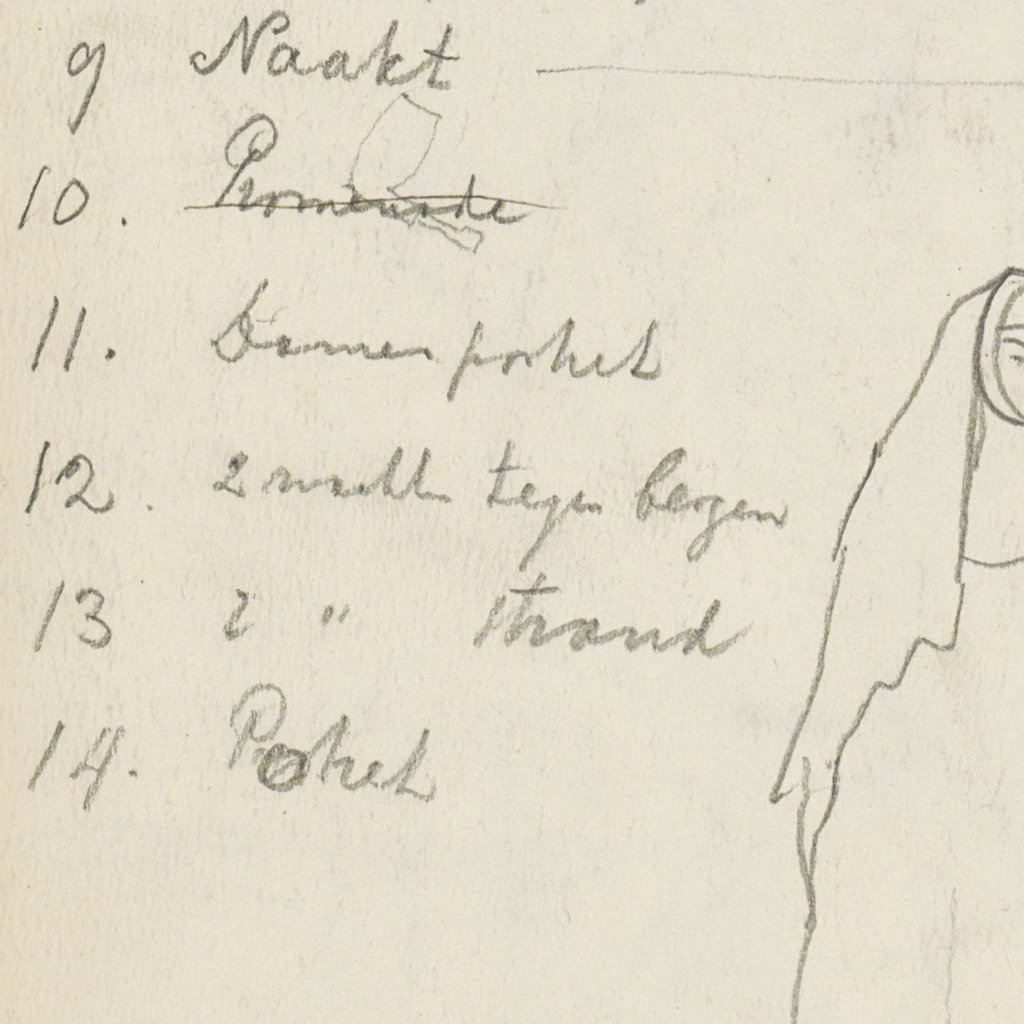 9 Naakt
10. Promenade
11. Damen portret
12. 2 naakten tegen bergen
13 2 " strand
14. Portret